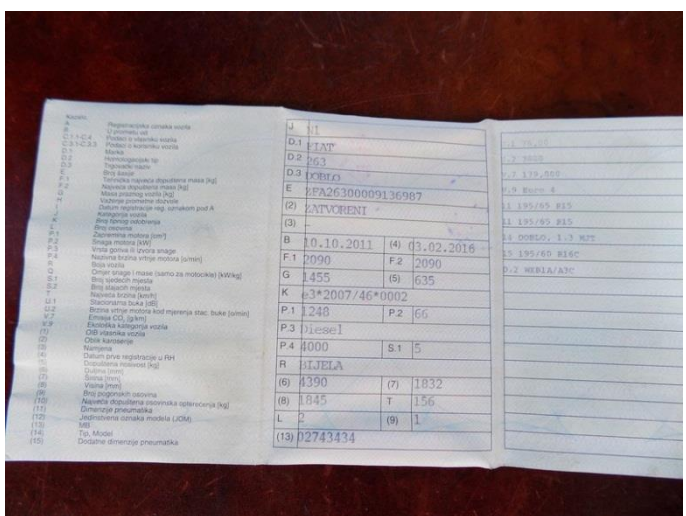 A Registracijska oznaka vozila
B U prometu od
C.1.1-C.4 Podaci o vlasniku vozila
C.3.1-C.3.3 Podaci o korisniku vozila
D.1 Marka
D.2 Homologacijski tip
D.3 Trgovački naziv
E Broj šasije
F.1 Tehnička najveća dopuštena masa [kg]
F.2 Najveća dopuštena masa [kg]
G Masa praznog vozila [kg]
H Važenje prometne dozvole
I Datum registracije reg. oznakom pod A
J Kategorija vozila
K Broj tipnog odobrenja
L Broj osovina
P.1 Zapremina motora [cm³]
P.2 Snaga motora [kW]
P.3 Vrsta goriva ili izvora snage
P.4 Nazivna brzina vrtnje motora [o/min]
R Boja vozila
Q Omjer snage i mase (samo za motocikle) [kW/kg]
S.1 Broj sjedećih mjesta
S.2 Broj stajaćih mjesta
T Najveća brzina [km/h]
U.1 Stacionarna buka [dB]
U.2 Brzina vrtnje motora kod mjerenja stac. buke [o/min]
V.7 Emisija CO₂ [g/km]
V.9 Ekološka kategorija vozila
(1) OIB vlasnika vozila
(2) Oblik karoserije
(3) Namjena
(4) Datum prve registracije u RH
(5) Dopuštena nosivost [kg]
(6) Duljina [mm]
(7) Širina [mm]
(8) Visina [mm]
(9) Broj pogonskih osovina
(10) Najveća dopuštena osovinska opterećenja [kg]
(11) Dimenzije pneumatika
(12) Jedinstvena oznaka modela (JOM)
(13) MB
(14) Tip, Model
(15) Dodatne dimenzije pneumatika
J N1
D.1 FIAT
D.2 263
D.3 DOBLO
E ZFA26300009136987
(2) ZATVORENI
(3) -
B 10.10.2011 (4) 03.02.2016
F.1 2090 F.2 2090
G 1455 (5) 635
K e3*2007/46*0002
P.1 1248 P.2 66
P.3 Diesel
P.4 4000 S.1 5
R BIJELA
(6) 4390 (7) 1832
(8) 1845 T 156
L 2 (9) 1
(13) 02743434
Euro 4
195/65 R15
195/65 R15
DOBLO, 1.3 MJT
195/60 R16C